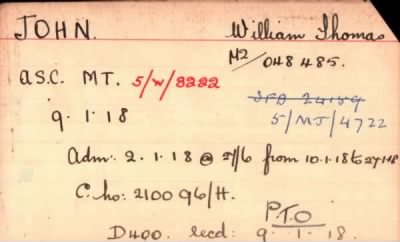 JOHN. William Thomas
M2/048485.
A.S.C. M.T. 5/W/8222
9.1.18
5/MJ/4722
Adm: 2.1.18 @ 27/6 from 10.1.18 to 27.1.18
C. ho: 210096/H.
P.T.O
D400. recd: 9.1.18.